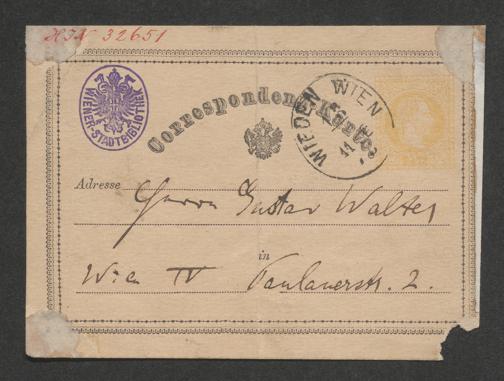 HIN 32651
WIENER-STADTBIBLIOTHEK
Correspondenz-Karte.
WIEDEN WIEN
11
Adresse Herrn Gustav Walter
in
Wien IV Paulanerstr. 2.